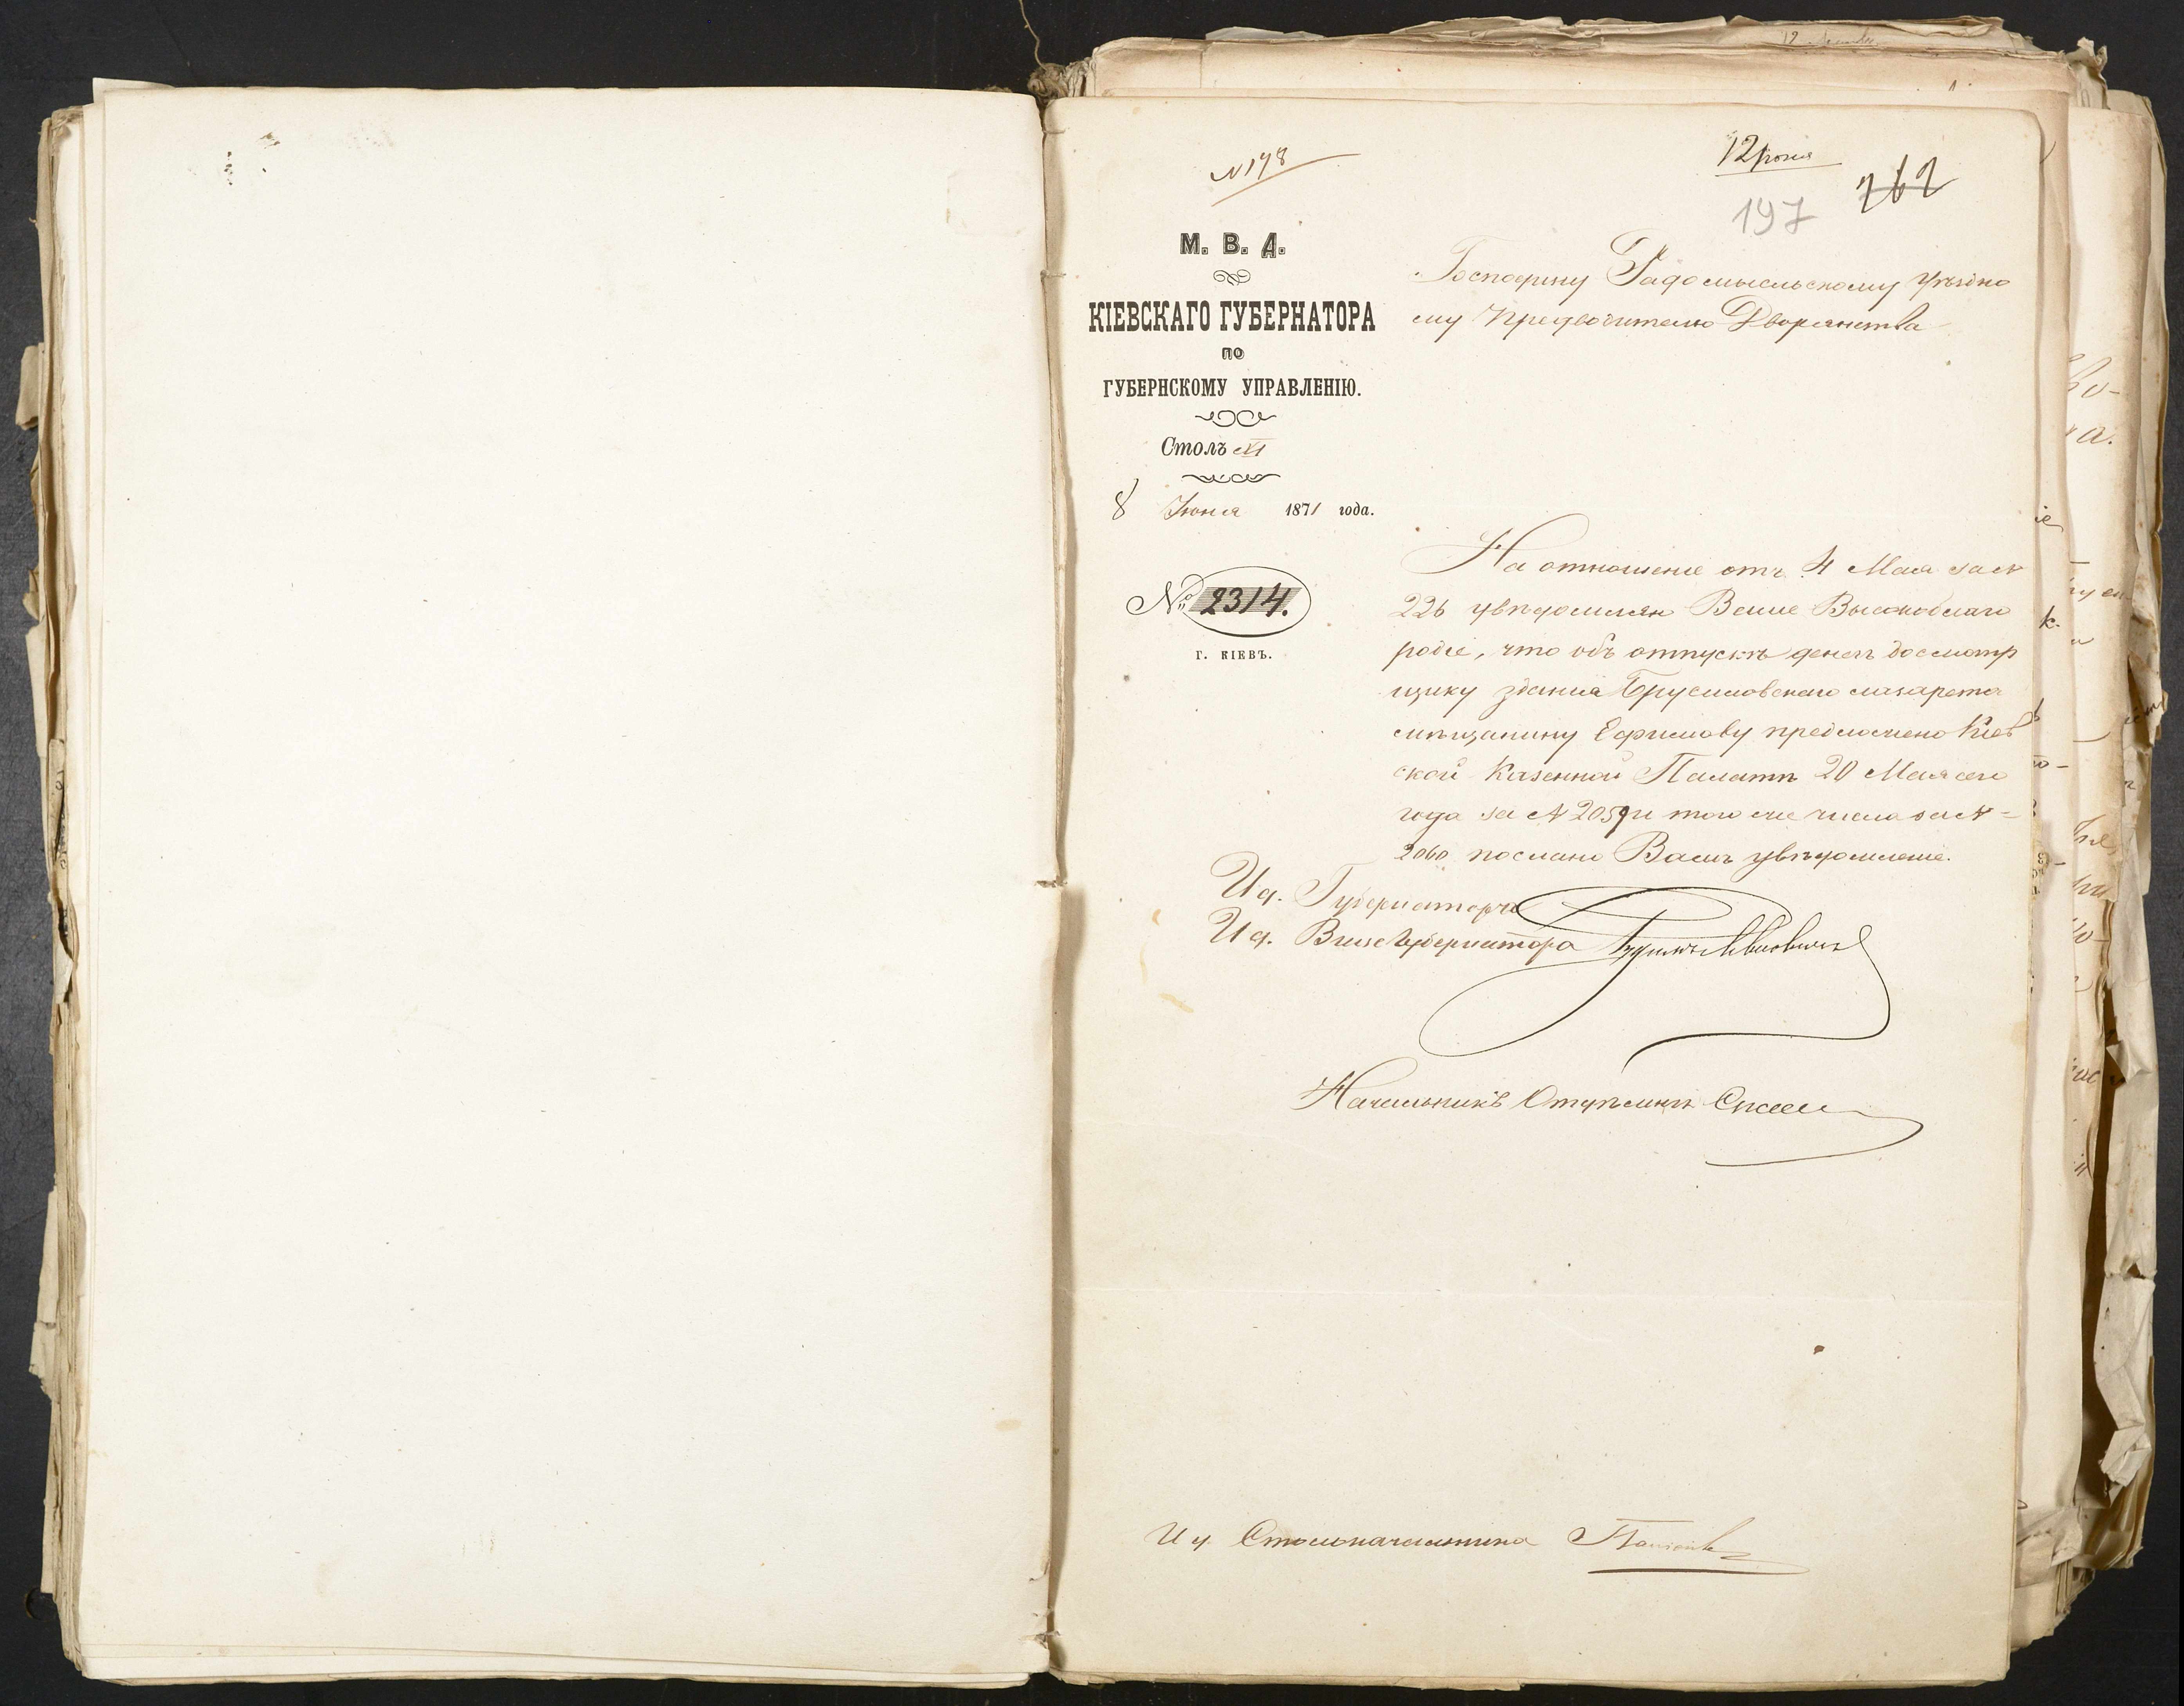 № 198
12 Юня
197
262
М. В. Д.
КІЕВСКАГО ГУБЕРНАТОРА
ПО
ГУБЕРНСКОМУ УПРАВЛЕНІЮ.
Столъ VI
8 Юня 1871 года.
№ 2314.
Г. КІЕВЪ.
Господину Радомысльскому уѣздно
му Предводителю Дворянства
На отношеніе отъ 4 Мая за №
226 увѣдомляю Ваше Высокоблаго
родіе, что объ отпускѣ денегъ досмотр
щику зданія Брусиловскаго лазарета
мѣщанину Ефимову предложено Кіев
ской Казенной Палатѣ 20 Мая сего
года за № 2059 и того же числа за №
2060 послано Вамъ увѣдомленіе.
И д. Губернатора
И д. Вице Губернатора
Начальникъ Отдѣленія
И д Столоначальника